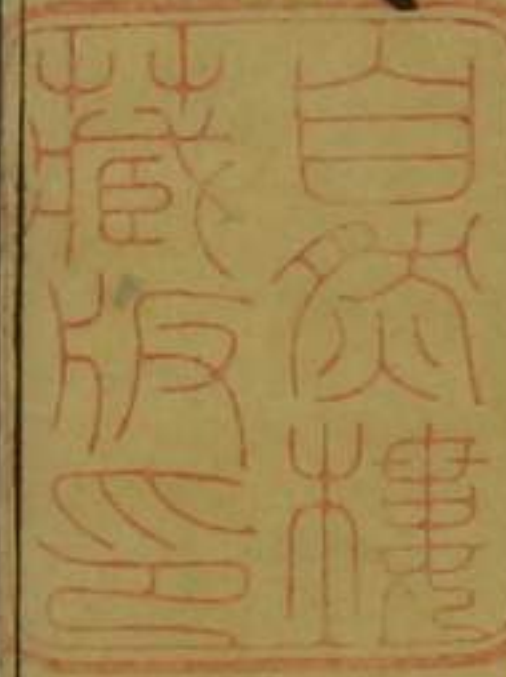 自然樓
藏版印